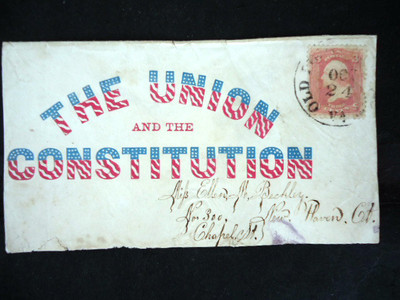 THE UNION
AND THE
CONSTITUTION
OLD
OC
24
VA
Miss Ellen M. Bechley
No 300. New Haven, Ct.
Chapel St.